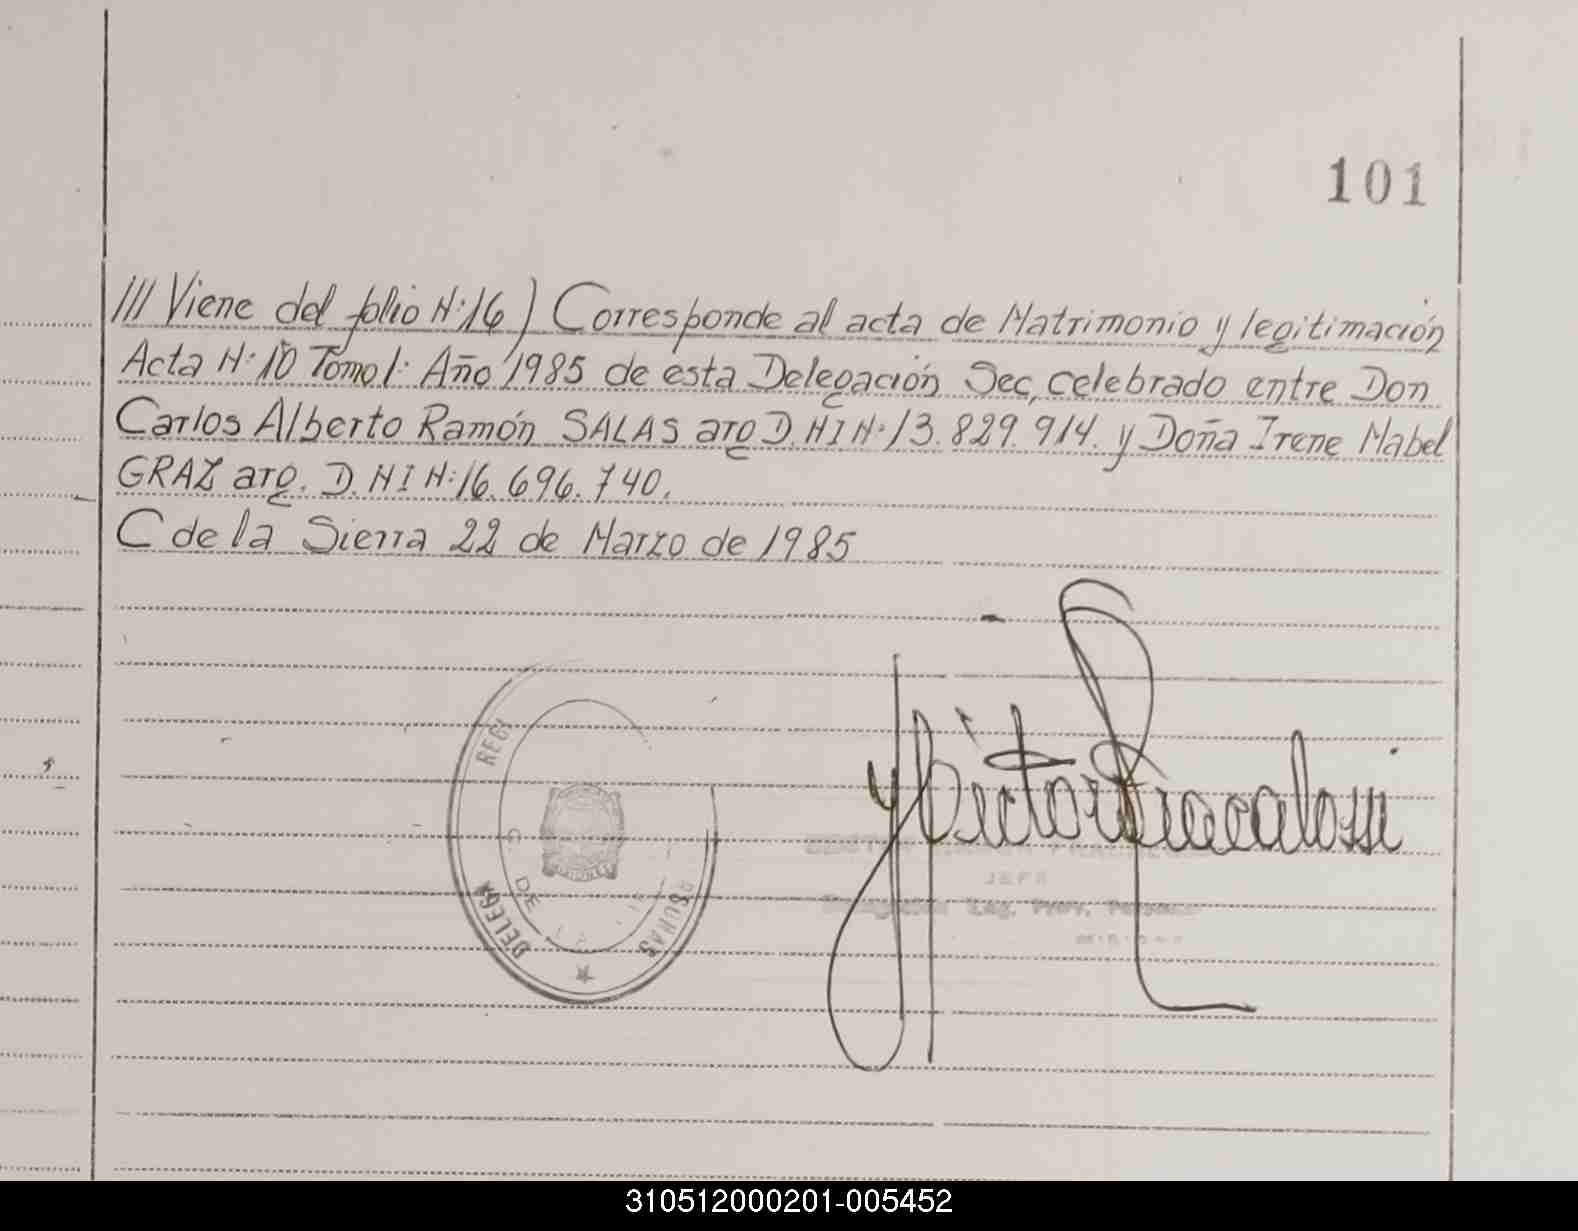 101
/// Viene del folio N:16) Corresponde al acta de Matrimonio y legitimación
Acta N:10 Tomo 1: Año 1985 de esta Delegación Sec, celebrado entre Don
Carlos Alberto Ramón SALAS arg D.N I N:13.829.914. y Doña Irene Mabel
GRAZ arg. D.N I N:16.696.740.
C de la Sierra 22 de Marzo de 1985
REGI
DE
DELEG
JEFE
Reg. Prov.
310512000201-005452